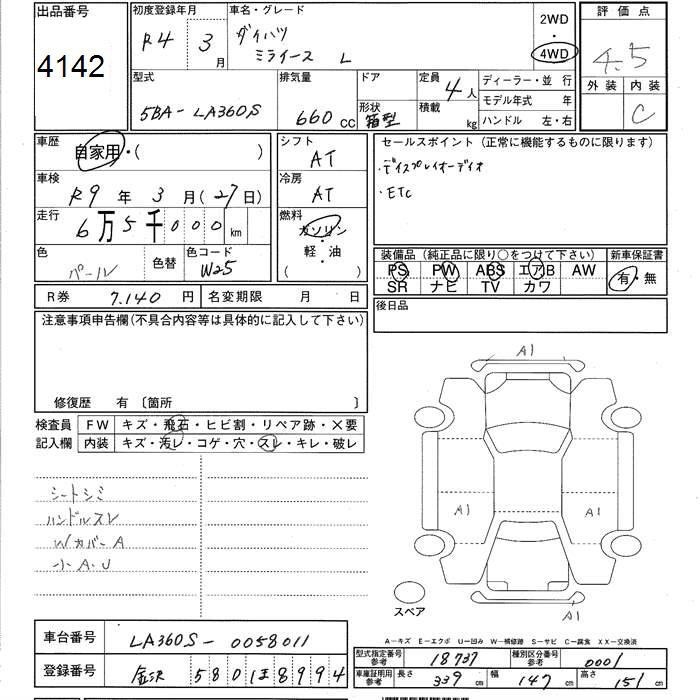 出品番号
4142
初度登録年月
R4 3月
車名・グレード
ダイハツ
ミライース L
2WD
・
4WD
評価点
4.5
外装 内装
C
型式
5BA-LA360S
排気量
660 cc
ドア
形状
箱型
定員 4人
積載 kg
ディーラー・並行
モデル年式 年
ハンドル 左・右
車歴
自家用・( )
車検
R9 年 3 月 (27日)
走行
6万5千000 km
色
パール
色替
色コード
W25
シフト
AT
冷房
AT
燃料
ガソリン
軽・油
( )
セールスポイント (正常に機能するものに限ります)
・ディスプレイオーディオ
・ETC
装備品 (純正品に限り○をつけて下さい)
PS PW ABS エアB AW
SR ナビ TV カワ
新車保証書
有・無
R券 7.140 円
名変期限 月 日
後日品
注意事項申告欄(不具合内容等は具体的に記入して下さい)
修復歴 有 〔箇所 〕
検査員
記入欄
FW キズ・飛石・ヒビ割・リペア跡・×要
内装 キズ・汚レ・コゲ・穴・スレ・キレ・破レ
シートシミ
ハンドルスレ
WカバーA
小A.U
A1
A1
A1
A1
スペア
A－キズ E－エクボ U－凹み W－補修跡 S－サビ C－腐食 XX－交換済
車台番号
LA360S-0058011
登録番号
580 8994
型式指定番号
参考
18737
種別区分番号
参考
0001
車庫証明用
参考
長さ 339 cm
幅 147 cm
高さ 151 cm